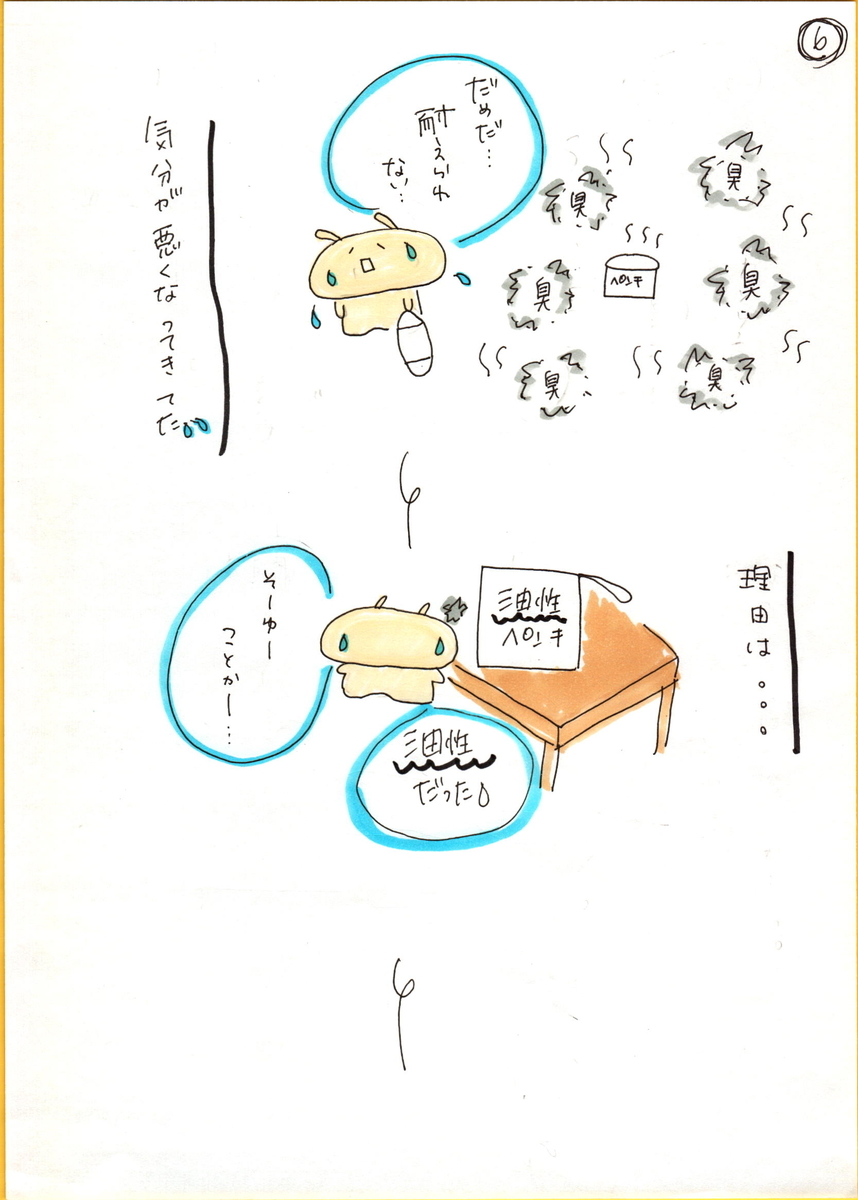 6
だめだ…
耐えられ
ない…
臭
臭
臭
臭
臭
臭
ペンキ
気分が悪くなってきてた
理由は。。。
油性
ペンキ
そーゆー
ことかー…
油性
だった